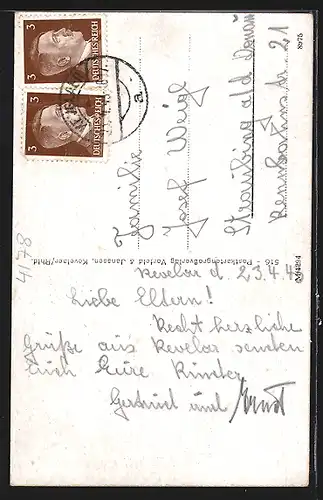 3
DEUTSCHES REICH
3
DEUTSCHES REICH
a
Familie
Josef Weigl
Straubing a/d Donau
21
8975
516 - Postkartengroßverlag Vorfeld & Janssen, Kevelaer/Rhld.
4178
Kevelar d. 23.4.4
Liebe Eltern!
Recht herzliche
Grüße aus Kevelar senden
Euch Eure Kinder
Gertrud und Ernst